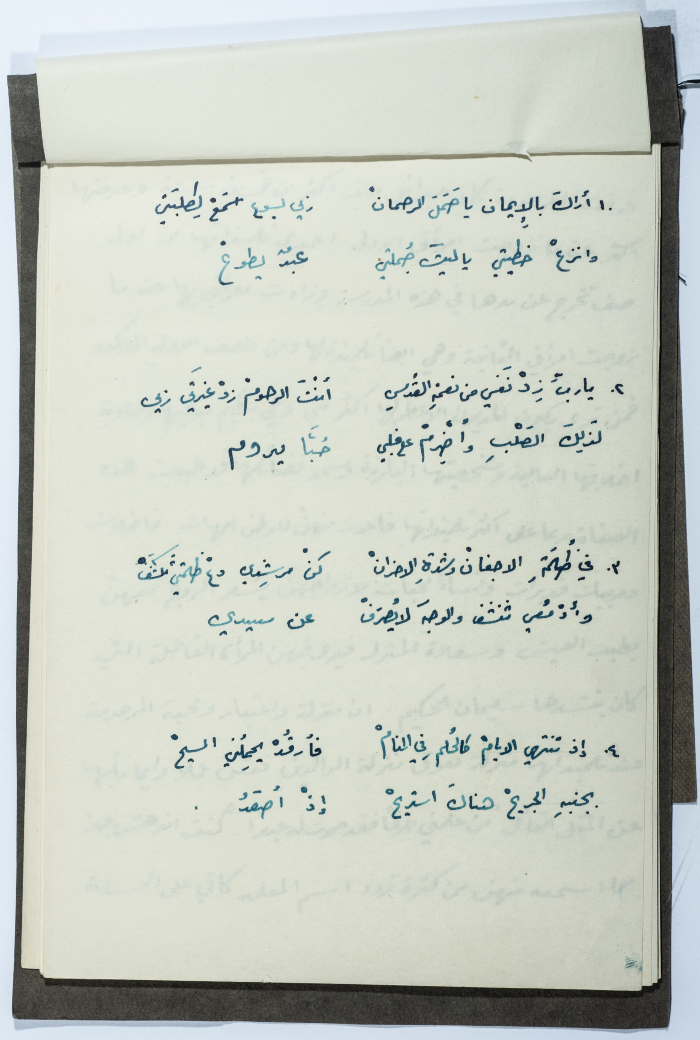 ١. أراك بالإيمان يا حَمَلَ الرحمانْ ربي يسوع اسمَعْ لِطلبَتي
وانزعْ خطيتي ياليتَ جُملتي عبدٌ يطوعْ
٢. ياربُّ زِدْ نَفسي من نعمة القدسِ أنْتَ الرحومْ زدْ غيرَتي ربي
لَذيلكَ الصَلْبِ وأُضْرِمْ على قلبي حُبًّا يدوم
٣. في ظُلمَةِ الاجفانْ وشدةِ الاحزانْ كنْ مرشدي دعْ ظلمتي تُكشَفْ
وأدْمُعي تنشف والوجهَ لا يُصرَفْ عن سيدي
٤. إذ تنتهي الايامْ كالحُلمِ في المنامْ فأرقُدْ يحمِلُني المسيحْ
بجنبهِ الجريحْ هناكَ استريحْ إذْ أصعَدُ .